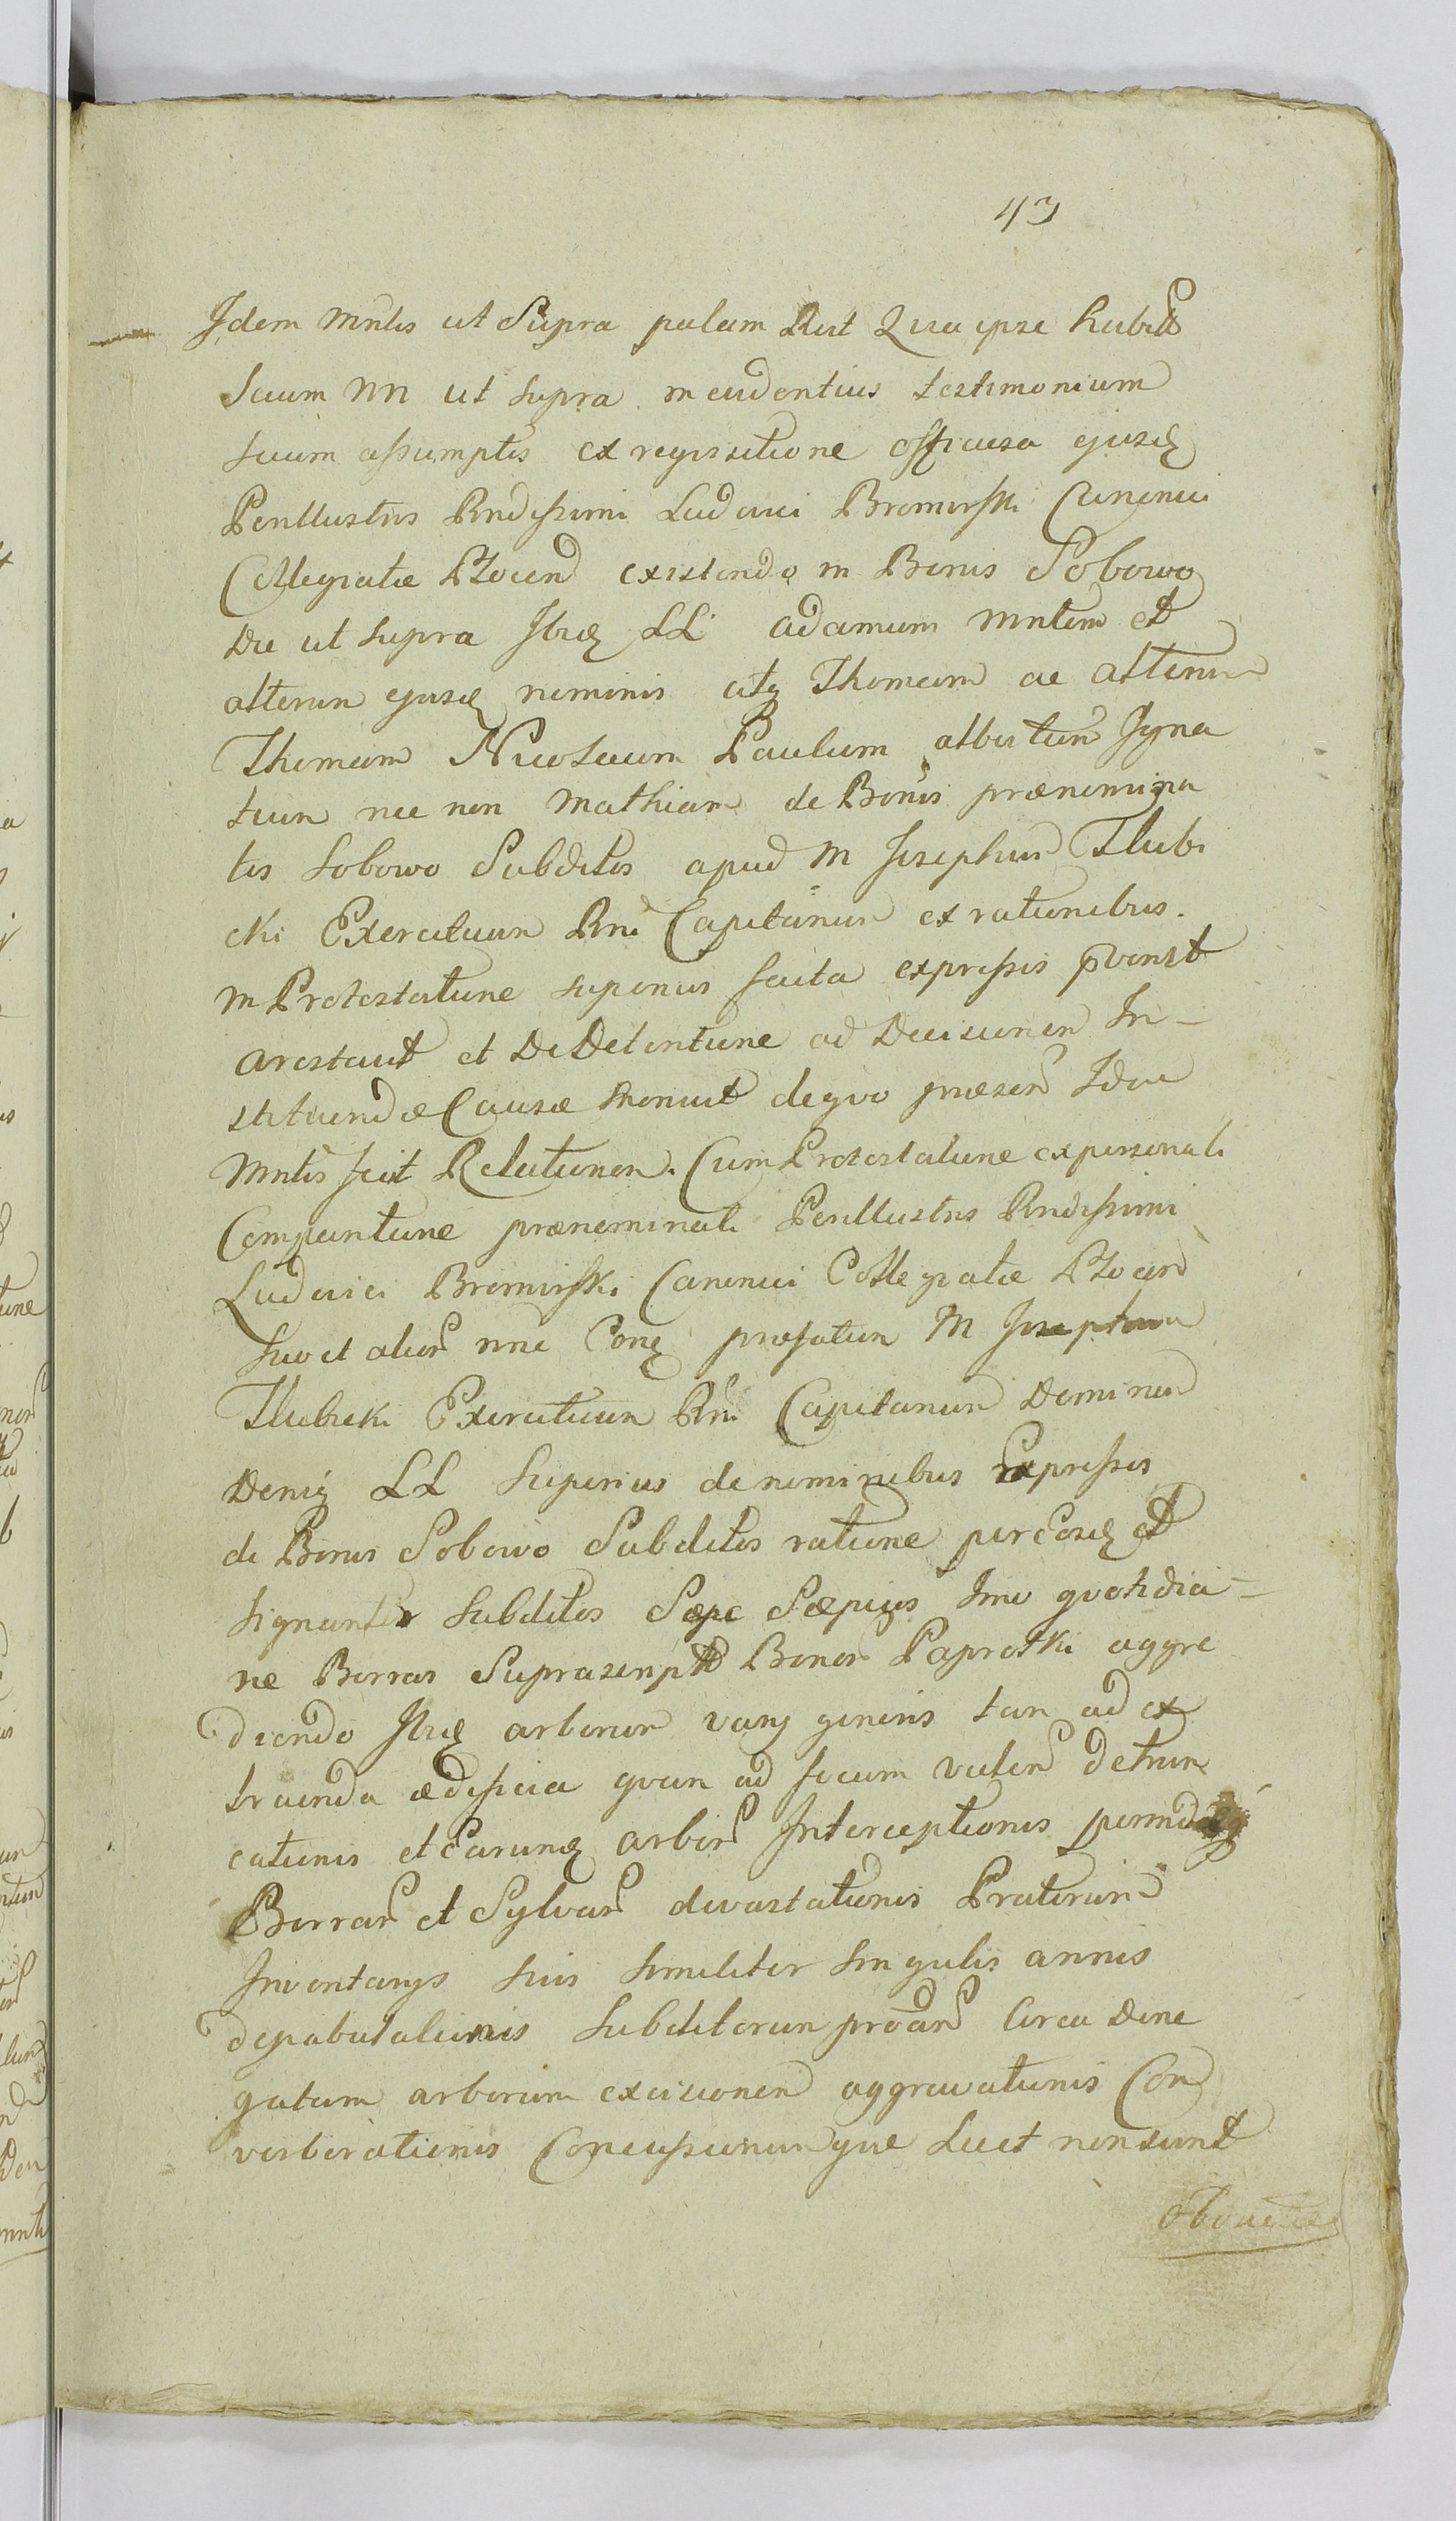 43
Idem Mntis ut Supra palam Rcit Quia ipse habitis
secum NN ut supra in evidentius testimonium
suum assumptis ex requisitione officiosa ejusdq
Perillustris Rndissimi Ludovici Bromirski Canonici
Collegiatæ Plocen existendo in Bonis Sobowo
Die ut supra Ibiq LL Adamum Mntem et
alterum ejusdq nominis atq Thomam ac alterum
Thomam Nicolaum Paulum Albertum Igna
tium nec non Mathiam de Bonis prænomina
tis Sobowo Subditos apud M Josephum Tlubi
cki Exercituum Rni Capitaneum ex rationibus.
in Protestatione superius facta expressis pvenit
Arestavit et De Detentione ad Decisionem In-
stituendæ Causæ monuit de quo præsen Idem
Mntis fecit Relationem. Cum Protestatione ex personali
Comparitione prænominati Perillustris Rndissimi
Ludovici Bromirski Canonici Collegiatæ Plocen
suo et alior nne Conq præfatum M Josephum
Tlubicki Exercituum Rni Capitaneum Dominum
Deniq LL superius de nominibus Expressos
de Bonis Sobowo Subditos ratione per Eosdq et
signanter Subditos Sæpe Sæpius Imo quotidia-
ne Borras Suprascriptor Bonor Paprotki aggre
diendo Ibiq arborum varij generis tam ad ex
truenda ædificia quam ad focum valen detrun
cationis et Earumq arbor Interceptionis
Borrar et Sylvar devastationis Pratorum
Inventarys suis similiter singulis annis
depabulationis Subditorum circa Dene
gatam arborum excisionem aggravationis Con
verberationis Concussionumque Licet non sunt